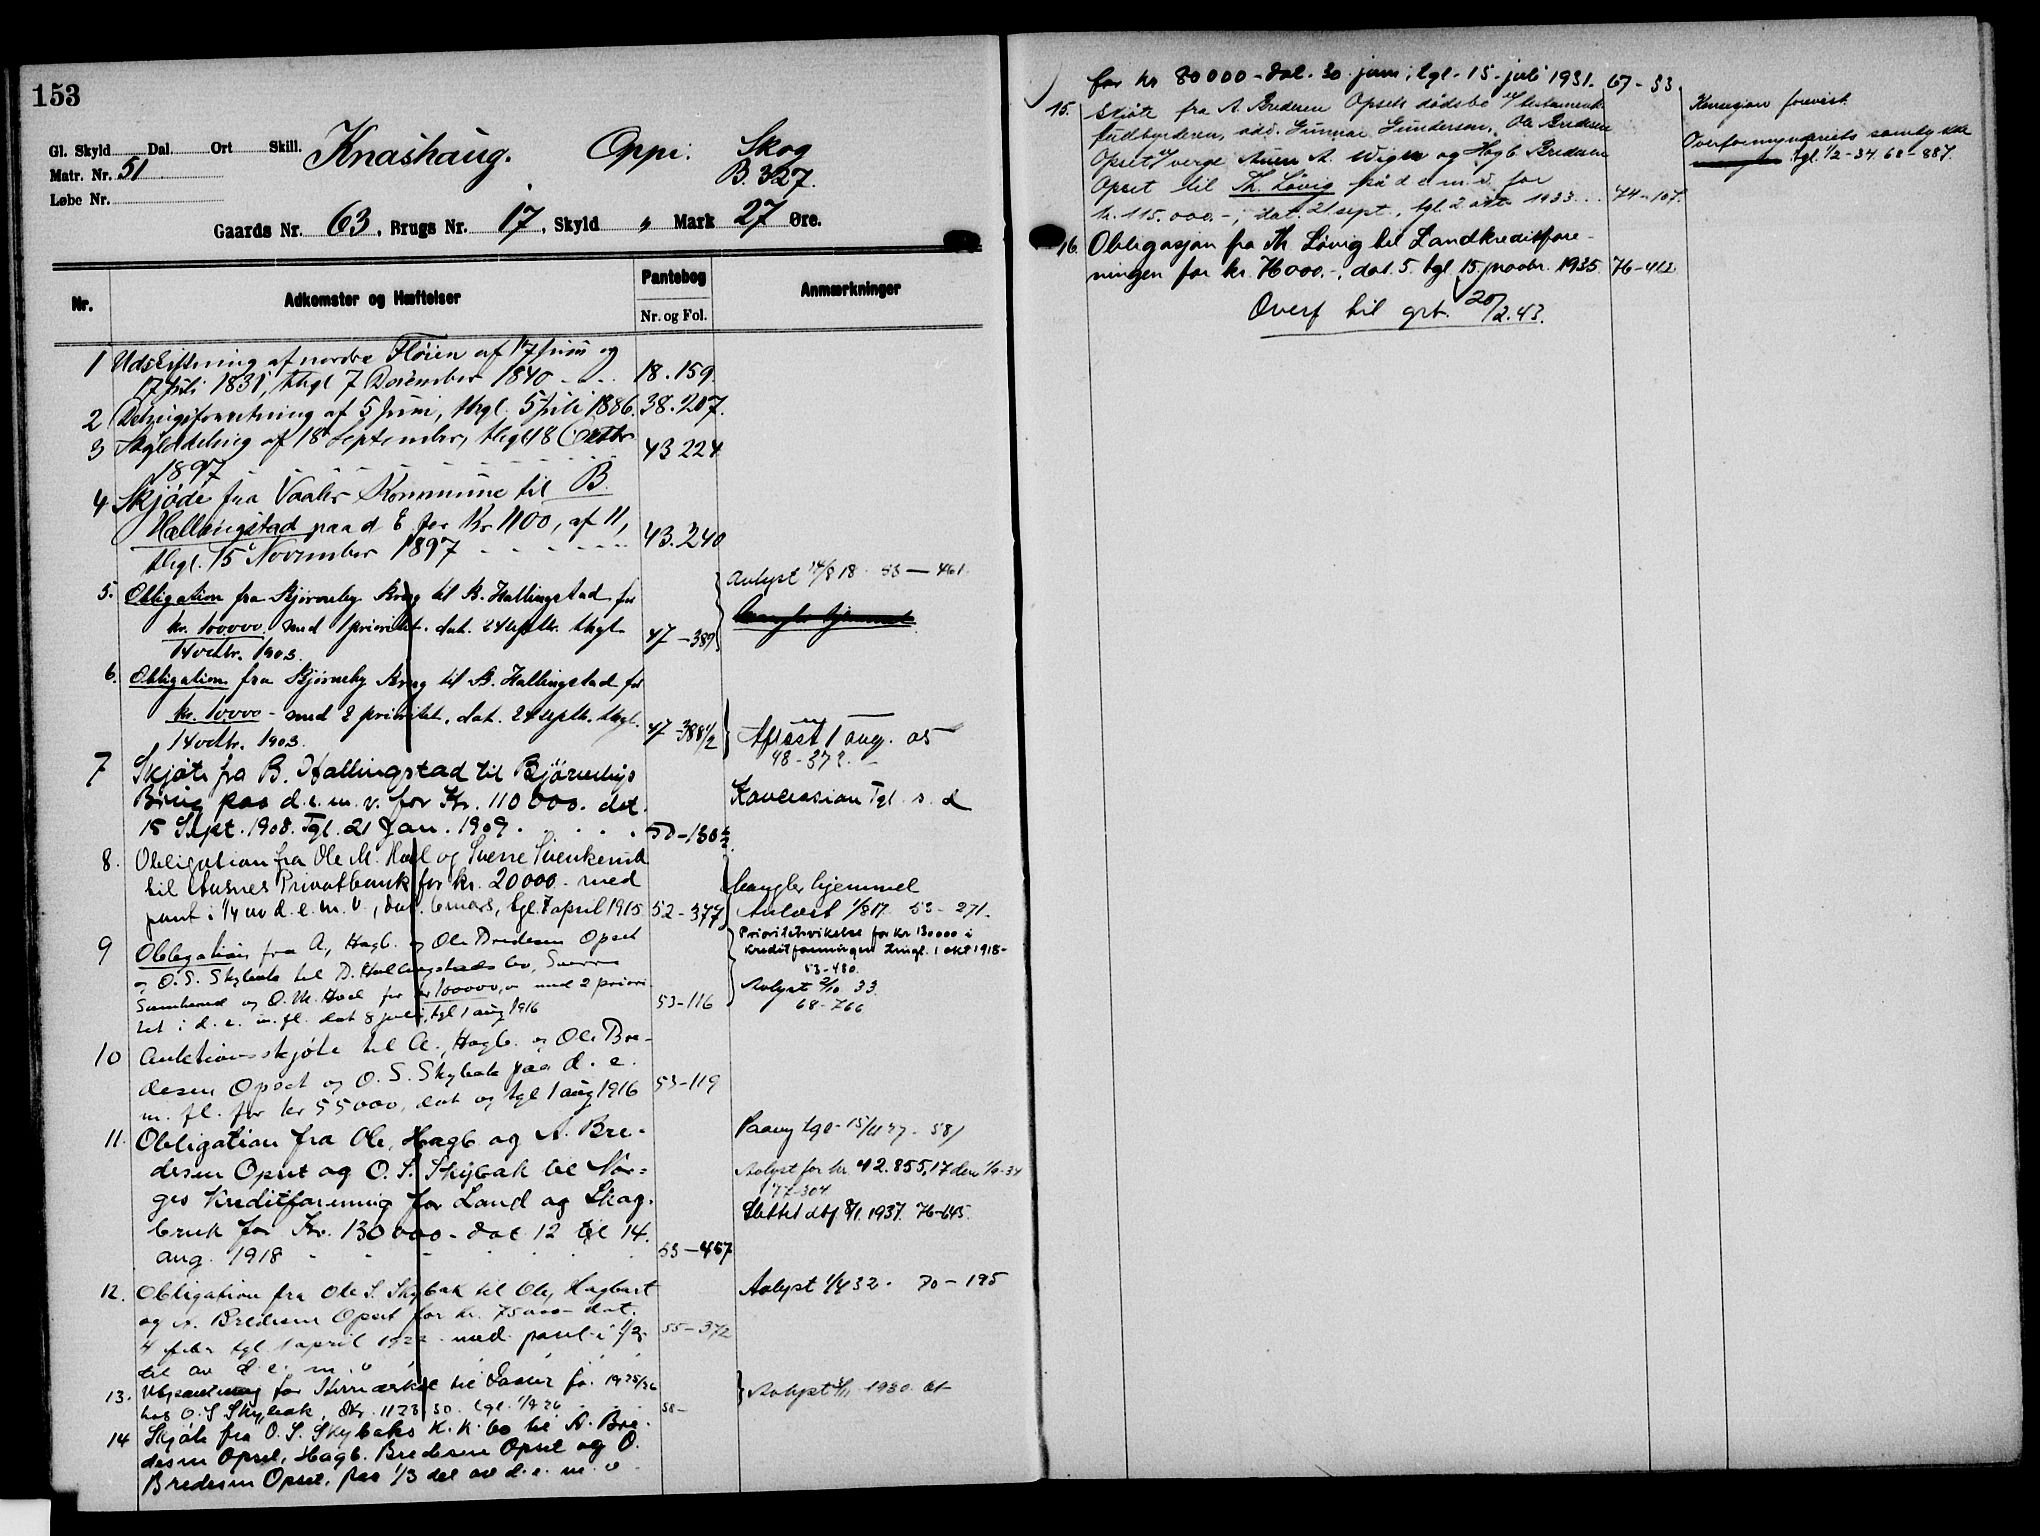 153
Gl. Skyld Dal. Ort Skill. Knashaug. Oppi. Skog
Matr. Nr. 51 B. 327.
Løbe Nr.
Gaards Nr. 63, Brugs Nr. 17, Skyld " Mark 27 Øre.
Nr. Adkomster og Hæftelser Pantebog Nr. og Fol. Anmærkninger
1 Udskiftning af nordre Fløien af 17 Juni og
17 Juli 1831, thgl 7 December 1840 18.159
2 Delingsforretning af 5 Juni, thgl. 5 Juli 1886. 38.207.
3 Skylddeling af 18 September, thgl 18 Octbr
1897 43 224
4 Skjøde fra Vaaler Kommune til B.
Hallingstad paa d E for Kr 1100, af 11,
thgl. 15 November 1897 43.240
5. Obligation fra Bjørneby Brug til B. Hallingstad for
kr. 100000 med 1 prioritet. dat. 24 septbr. thgl.
14 octbr. 1903. 47-389
Avlyst 14/8 18 53-461.
6. Obligation fra Bjørneby Brug til B. Hallingstad for
kr. 10000 - med 2 prioritet. dat. 24 septbr. thgl.
14 octbr. 1903. 47-388 1/2
Aflæst 1 aug. 05
48-372.
7 Skjøte fra B. Hallingstad til Bjørnebys
Brug paa d.e.m.v. for Kr. 110000. dat.
15 Sept. 1908. Tgl. 21 Jan. 1909. 50-130 1/2
Koncession Tgl. s. d
8. Obligation fra Ole M. Hoel og Sverre
til Aasnes Privatbank for kr. 20000.- med
pant i 1/4 av d.e.m.v., dat. 6 mars, tgl. 7 april 1915 52-377
Mangler hjemmel
Avlæst 1/8 17 53-271.
9 Obligation fra A., Hagb. og Ole Bredesen Opset
og O. S. Skybak til B. Hallingstads bo, Sverre
og O. M. Hoel for kr 100000,00 med 2 priori-
tet i d.e.m.fl. dat 8 juli, tgl 1 aug 1916 53-116
Prioritetsvikelse for kr 130000 i
Kreditforeningen tingl. 1 okt 1918-
53-480.
Avlyst 2/10 33.
68-766
10 Auktionsskjøte til A., Hagb. og Ole Bre-
desen Opset og O. S. Skybak paa d. e.
m. fl. for kr 55000, dat og tgl 1 aug 1916 53-119
11. Obligation fra Ole, Hagb. og A. Bre-
desen Opset og O. S. Skybak til Nor-
ges Kreditforening for Land og Skog-
bruk for Kr. 130000- dat 12 tgl 14.
aug. 1918 53-457
Avlyst for kr. 42.855,17 den 1/6-34
77-304
Slettet dbf 8/1 1937. 76-645.
12. Obligation fra Ole S. Skybak til Ole, Hagbart
og A. Bredesen Opset for kr. 75000- dat.
4 febr tgl. 1 april 1922 med pant i 1/3
del av d. e. m. v 55-372
Avlyst 1/4 32. 70-195
13. Utpantning for Kirneærkel til Vaaler for 1925/26
hos O. S Skybak, Kr. 1123 50. tgl. 1/9 26 58-
Avlyst 5/11 1930.
14 Skjøte fra O. S. Skybaks K.K.bo til A. Bre-
desen Opset, Hagb. Bredesen Opset og O.
Bredesen Opset, paa 1/3 del av d. e. m. v
for kr 80000- dat. 30. juni, tgl. 15. juli 1931. 67-53.
15. Skjøte fra A. Bredesen Opsets dødsbo v/ testament-
fuldbyrderen, adv. Gunnar Gundersen, Ole Bredesen
Opset v/ verge Auen A. Wigen og Hagb. Bredesen
Opset til Th. Løvig på d e m.v. for
kr. 115.000.-, dat. 21 sept., tgl. 2 okt. 1933 74-107.
Konsesjon forevist.
Overformynderiets samtykke
tgl. 1/2-34. 68-887.
16. Obligasjon fra Th. Løvig til Landkreditfore-
ningen for kr. 76000.-, dat. 5. tgl. 15. novbr. 1935. 76-412
Overf til grb. 20/2.43.